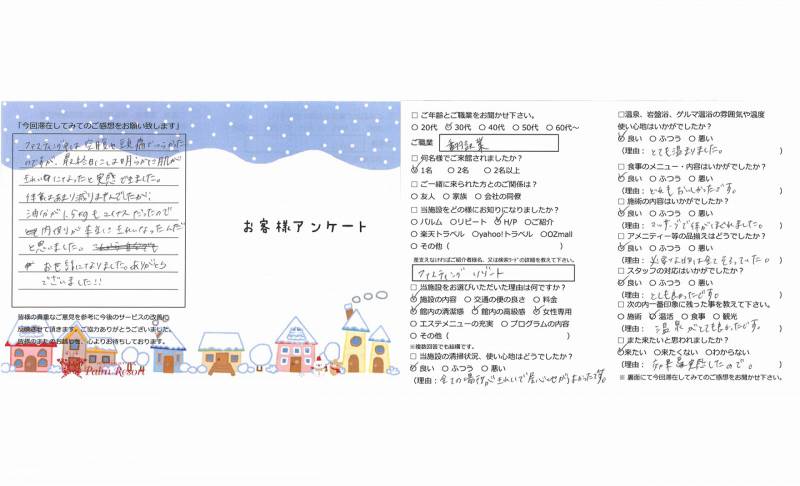 「今回滞在してみてのご感想をお願い致します」
ファスティング中は空腹や頭痛でつらかった
のですが、最終日には明らかに肌が
きれいになったと実感できました。
体重はあまり減りませんでしたが、
油分が1.5kgもマイナスだったので
内側が本当にきれいになったんだ
と思いました。
お世話になりました。ありがとう
ございました!!
皆様の貴重なご意見を参考に今後のサービスの改善に
反映させて頂きます。ご協力ありがとうございました。
皆様のまたのお越しを、心よりお待ちしております。
Palm Resort
お客様アンケート
□ ご年齢とご職業をお聞かせ下さい。
○ 20代 ○ 30代 ○ 40代 ○ 50代 ○ 60代~
ご職業 翻訳業
□ 何名様でご来館されましたか?
○ 1名 ○ 2名 ○ 2名以上
□ ご一緒に来られた方とのご関係は?
○ 友人 ○ 家族 ○ 会社の同僚
□ 当施設をどの様にお知りになりましたか?
○ パルム ○リピート ○ H/P ○ご紹介
○ 楽天トラベル ○Yahoo!トラベル ○OZmall
○ その他( )
差支えなければご紹介者様名、又は検索ワードの詳細を教えて下さい。
ファスティング リゾート
□ 当施設をお選びいただいた理由は何ですか?
○ 施設の内容 ○ 交通の便の良さ ○ 料金
○ 館内の清潔感 ○ 館内の高級感 ○ 女性専用
○ エステメニューの充実 ○ プログラムの内容
○ その他( )
※複数回答でも結構です。
□ 当施設の清掃状況、使い心地はどうでしたか?
○ 良い ○ ふつう ○ 悪い
(理由: 全ての場所がきれいで居心地がよかったです。
□温泉、岩盤浴、ゲルマ温浴の雰囲気や温度
使い心地はいかがでしたか?
○ 良い ○ ふつう ○ 悪い
(理由: とても温まりました。 )
□ 食事のメニュー・内容はいかがでしたか?
○ 良い ○ ふつう ○ 悪い
(理由: とてもおいしかったです。 )
□ 施術の内容はいかがでしたか?
○ 良い ○ ふつう ○ 悪い
(理由: マッサージで体がほぐれました。 )
□ アメニティー等の品揃えはどうでしたか?
○ 良い ○ ふつう ○ 悪い
(理由: 必要なものは全てそろっていた。 )
□ スタッフの対応はいかがでしたか?
○ 良い ○ ふつう ○ 悪い
(理由: とても良かったです。 )
□ 次の内一番印象に残った事を教えて下さい。
○ 施術 ○ 温活 ○ 食事 ○ 観光
(理由: 温泉がとてもよかったです。 )
□ また来たいと思われましたか?
○来たい ○ 来たくない ○ わからない
(理由: 効果を実感したので。 )
※ 裏面にて今回滞在してみてのご感想をお聞かせ下さい。